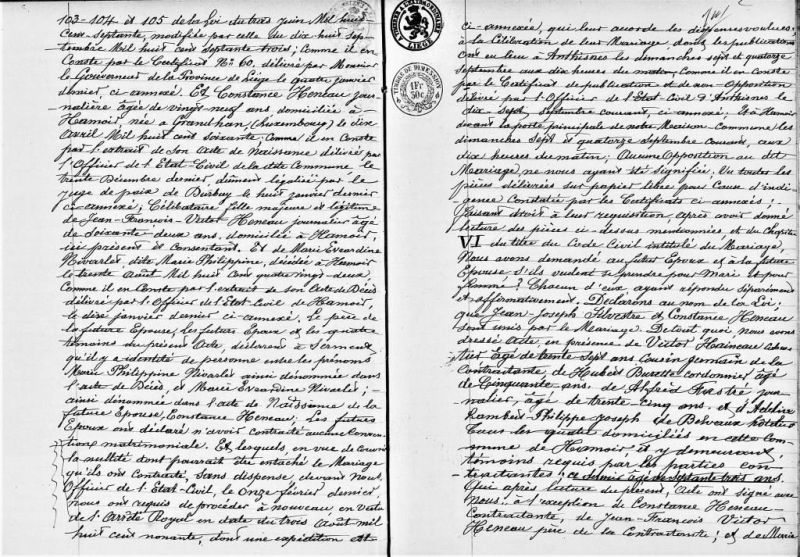 103-104 et 105 de la Loi du trois juin Mil huit
Cent Septante, modifiée par celle du dix huit Sep-
tembre Mil huit cent septante trois; Comme il en
Conste par le Certificat No 60, délivré par Monsieur
le Gouverneur de la Province de Liège le quatre janvier
dernier, ci annexé. Et Constance Heneau jour-
nalière âgée de vingt neuf ans domiciliée à
Hamoir née à Grandhan (Luxembourg) le dix
avril Mil huit cent soixante. Comme il en Conste
par l'extrait de son Acte de Naissance délivré par
l'Officier de l'Etat-Civil de la dite Commune le
trente Décembre dernier, dûment légalisé par le
juge de paix de Durbuy le huit janvier dernier
ci-annexé; Célibataire, fille majeure et légitime
de Jean-François-Victor Heneau journalier âgé
de soixante deux ans, domicilié à Hamoir,
ici présent et Consentant. Et de Marie Evrardine
Nivarlée dite Marie Philippine, décédée à Hamoir
le trente Août Mil huit cent quatre vingt-deux,
Comme il en Conste par l'extrait de son Acte de Décès
délivré par l'Officier de l'Etat-Civil de Hamoir,
le dix janvier dernier ci-annexé. Le père de
la future Epouse, les futurs Epoux et les quatre
témoins du présent Acte, déclarent à Serment
qu'il y a identité de personne entre les prénoms
Marie Philippine Nivarlée ainsi dénommée dans
l'acte de Décès, et Marie Evrardine Nivarlée;
ainsi dénommée dans l'acte de Naissance de la
future Epouse, Constance Heneau; Les futurs
Epoux ont déclaré n'avoir contracté aucune Conven-
tion matrimoniale. Et lesquels, en vue de couvrir
la nullité dont pourrait être entaché le Mariage
qu'ils ont Contracté, sans dispense, devant Nous
Officier de l'Etat-Civil, le Onze février dernier,
nous ont requis de procéder à nouveau, en vertu
de l'Arrêté Royal en date du trois Août mil
huit cent nonante, dont une expédition est
LIEGE
1Fr
50c
ci-annexée, qui leur accorde les dispenses voulues.
à la Célébration de leur Mariage, dont les publications
ont eu lieu à Anthisnes les dimanches sept et quatorze
Septembre aux dix heures du matin, Comme il en conste
par le Certificat de publication et de non-Opposition
délivré par l'Officier de l'Etat Civil d'Anthisnes
le dix Sept Septembre courant, ci annexé, Et à Hamoir
devant la porte principale de notre Maison Commune les
dimanches Sept et quatorze Septembre Courant, aux
dix heures du matin; Aucune Opposition au dit
Mariage ne nous ayant été signifiée. Vu toutes les
pièces délivrées sur papier libre pour Cause d'indi-
gence Constatée par les Certificats ci annexés;
Faisant droit à leur requisition, après avoir donné
lecture des pièces ci-dessus mentionnées et du Chapitre
VI du titre du Code Civil intitulé du Mariage,
Nous avons demandé au futur Epoux et à la future
Epouse S'ils veulent se prendre pour Mari et pour
Femme? Chacun d'eux ayant répondu séparément
et affirmativement; Déclarons au nom de la Loi;
que Jean-Joseph Silvestre et Constance Heneau
sont unis par le Mariage. De tout quoi, nous avons
dressé Acte, en présence de Victor Haineau
âgé de trente Sept ans cousin germain de la
Contractante, de Hubert Burette cordonnier, âgé
de Cinquante ans, de Alfred jour-
nalier, âgé de trente-cinq ans. et d'Adelin
Lambert Philippe Joseph de Belvaux
tous les quatre domiciliés en cette Com-
mune de Hamoir et y demeurant,
témoins requis par les parties con-
tractantes; ce dernier âgé de septante trois ans.
Qui après lecture du présent, Acte ont signé avec
Nous. à l'exception de Constance Heneau
Contractante, de Jean-François Victor
Heneau père de la Contractante; et de Marie